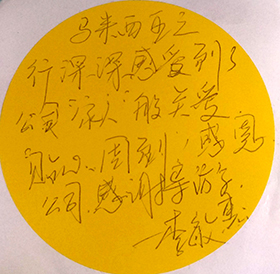 马来西亚之
行深深感受到了
公司家人般关爱
细心、周到,感恩
公司.感谢接游
李敏惠